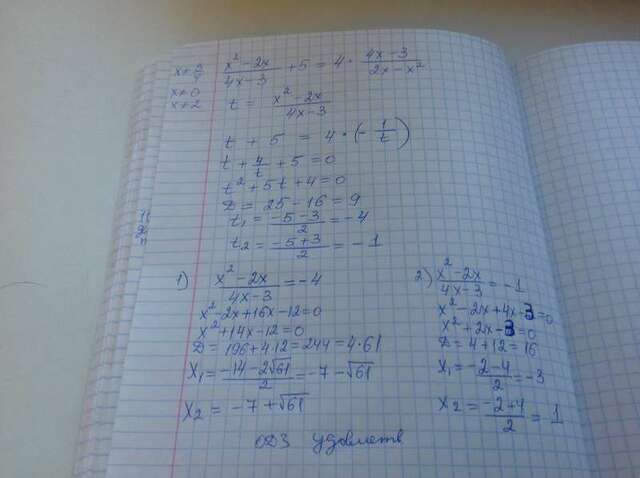 x≠3/4 (x²-2x)/(4x-3) + 5 = 4 · (4x-3)/(2x-x²)
x≠0
x≠2 t = (x²-2x)/(4x-3)
t + 5 = 4 · (-1/t)
t + 4/t + 5 = 0
t² + 5t + 4 = 0
D = 25 - 16 = 9
t₁ = (-5-3)/2 = -4
t₂ = (-5+3)/2 = -1
1) (x²-2x)/(4x-3) = -4
x² - 2x + 16x - 12 = 0
x² + 14x - 12 = 0
D = 196 + 4·12 = 244 = 4·61
x₁ = (-14-2√61)/2 = -7 - √61
x₂ = -7 + √61
2) (x²-2x)/(4x-3) = -1
x² - 2x + 4x - 3 = 0
x² + 2x - 3 = 0
D = 4 + 12 = 16
x₁ = (-2-4)/2 = -3
x₂ = (-2+4)/2 = 1
ОДЗ удовлетв